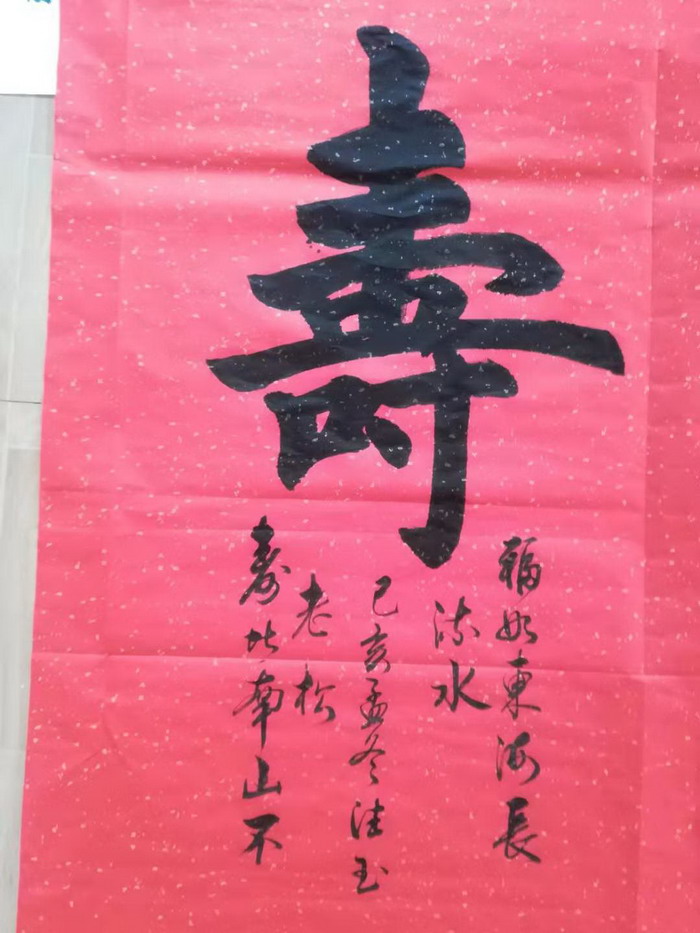 壽
福如東海長
流水
寿比南山不
老松
己亥孟冬玉